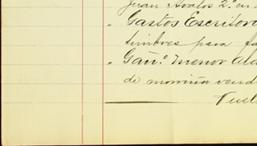 Juan Avalos 2º an
" Gastos Escritor
timbres para fa
" Gan.º menor Ala
de moriña vend
Vuel